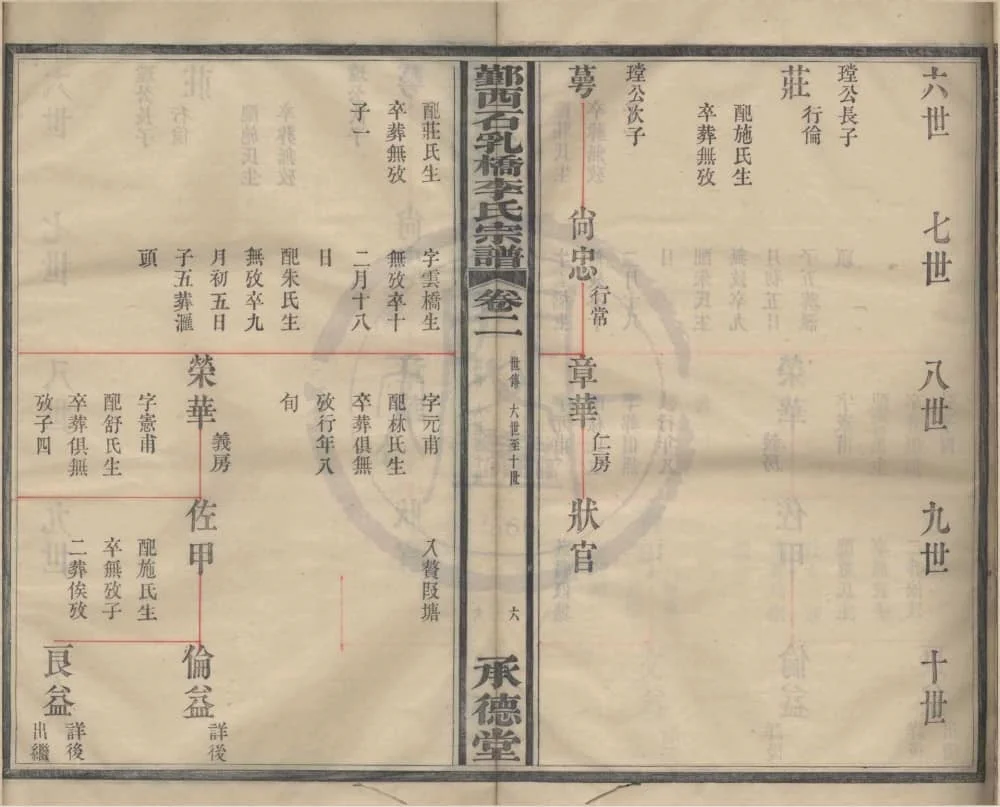 六世
七世
八世
九世
十世
瑝公長子
莊
行倫
配施氏生
卒葬無攷
瑝公次子
蕚
尙忠
行常
章華
仁房
狀官
鄞西石乳橋李氏宗譜
卷二
世傳 六世至十世
六
承德堂
配莊氏生
卒葬無攷
子一
字雲橋生
無攷卒十
二月十八
日
配朱氏生
無攷卒九
月初五日
子五葬滙
頭
字元甫
配林氏生
卒葬俱無
攷行年八
旬
入贅段塘
榮華
義房
字憲甫
配舒氏生
卒葬俱無
攷子四
佐甲
配施氏生
卒無攷子
二葬俟攷
倫益
詳後
良益
詳後
出繼